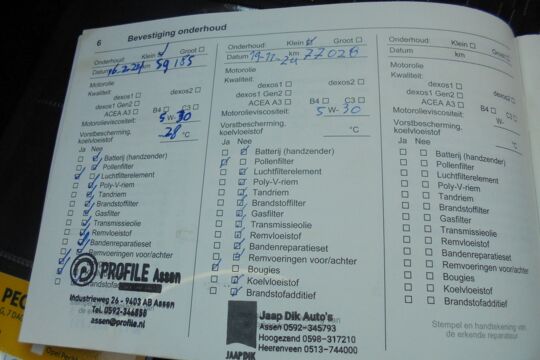 6 Bevestiging onderhoud
Onderhoud: Klein Groot
Datum km 59 185
Motorolie
Kwaliteit:
dexos1 dexos2
dexos1 Gen2
ACEA A3 B4 C3
Motorolieviscositeit: 5 W- 30
Vorstbescherming, koelvloeistof -28 °C
Ja Nee
Batterij (handzender)
Pollenfilter
Luchtfilterelement
Poly-V-riem
Tandriem
Brandstoffilter
Gasfilter
Transmissieolie
Remvloeistof
Bandenreparatieset
Remvoeringen voor/achter
PROFILE Assen
Industrieweg 26 - 9403 AB Assen
Tel. 0592-346858
assen@profile.nl
Onderhoud: Klein Groot
Datum 19-11-24 km 77028
Motorolie
Kwaliteit:
dexos1 dexos2
dexos1 Gen2
ACEA A3 B4 C3
Motorolieviscositeit: 5 W- 30
Vorstbescherming,
koelvloeistof °C
Ja Nee
Batterij (handzender)
Pollenfilter
Luchtfilterelement
Poly-V-riem
Tandriem
Brandstoffilter
Gasfilter
Transmissieolie
Remvloeistof
Bandenreparatieset
Remvoeringen voor/achter
Bougies
Koelvloeistof
Brandstofadditief
Jaap Dik Auto's
Assen 0592-345793
Hoogezand 0598-317210
Heerenveen 0513-744000
JAAP DIK
Onderhoud: Klein Groot
Datum km
Motorolie
Kwaliteit:
dexos1 dexos2
dexos1 Gen2
ACEA A3 B4 C3
Motorolieviscositeit: W-
Vorstbescherming,
koelvloeistof °C
Ja Nee
Batterij (handzender)
Pollenfilter
Luchtfilterelement
Poly-V-riem
Tandriem
Brandstoffilter
Gasfilter
Transmissieolie
Remvloeistof
Bandenreparatieset
Remvoeringen voor/achter
Bougies
Koelvloeistof
Brandstofadditief
Stempel en handtekening van
de erkende reparateur